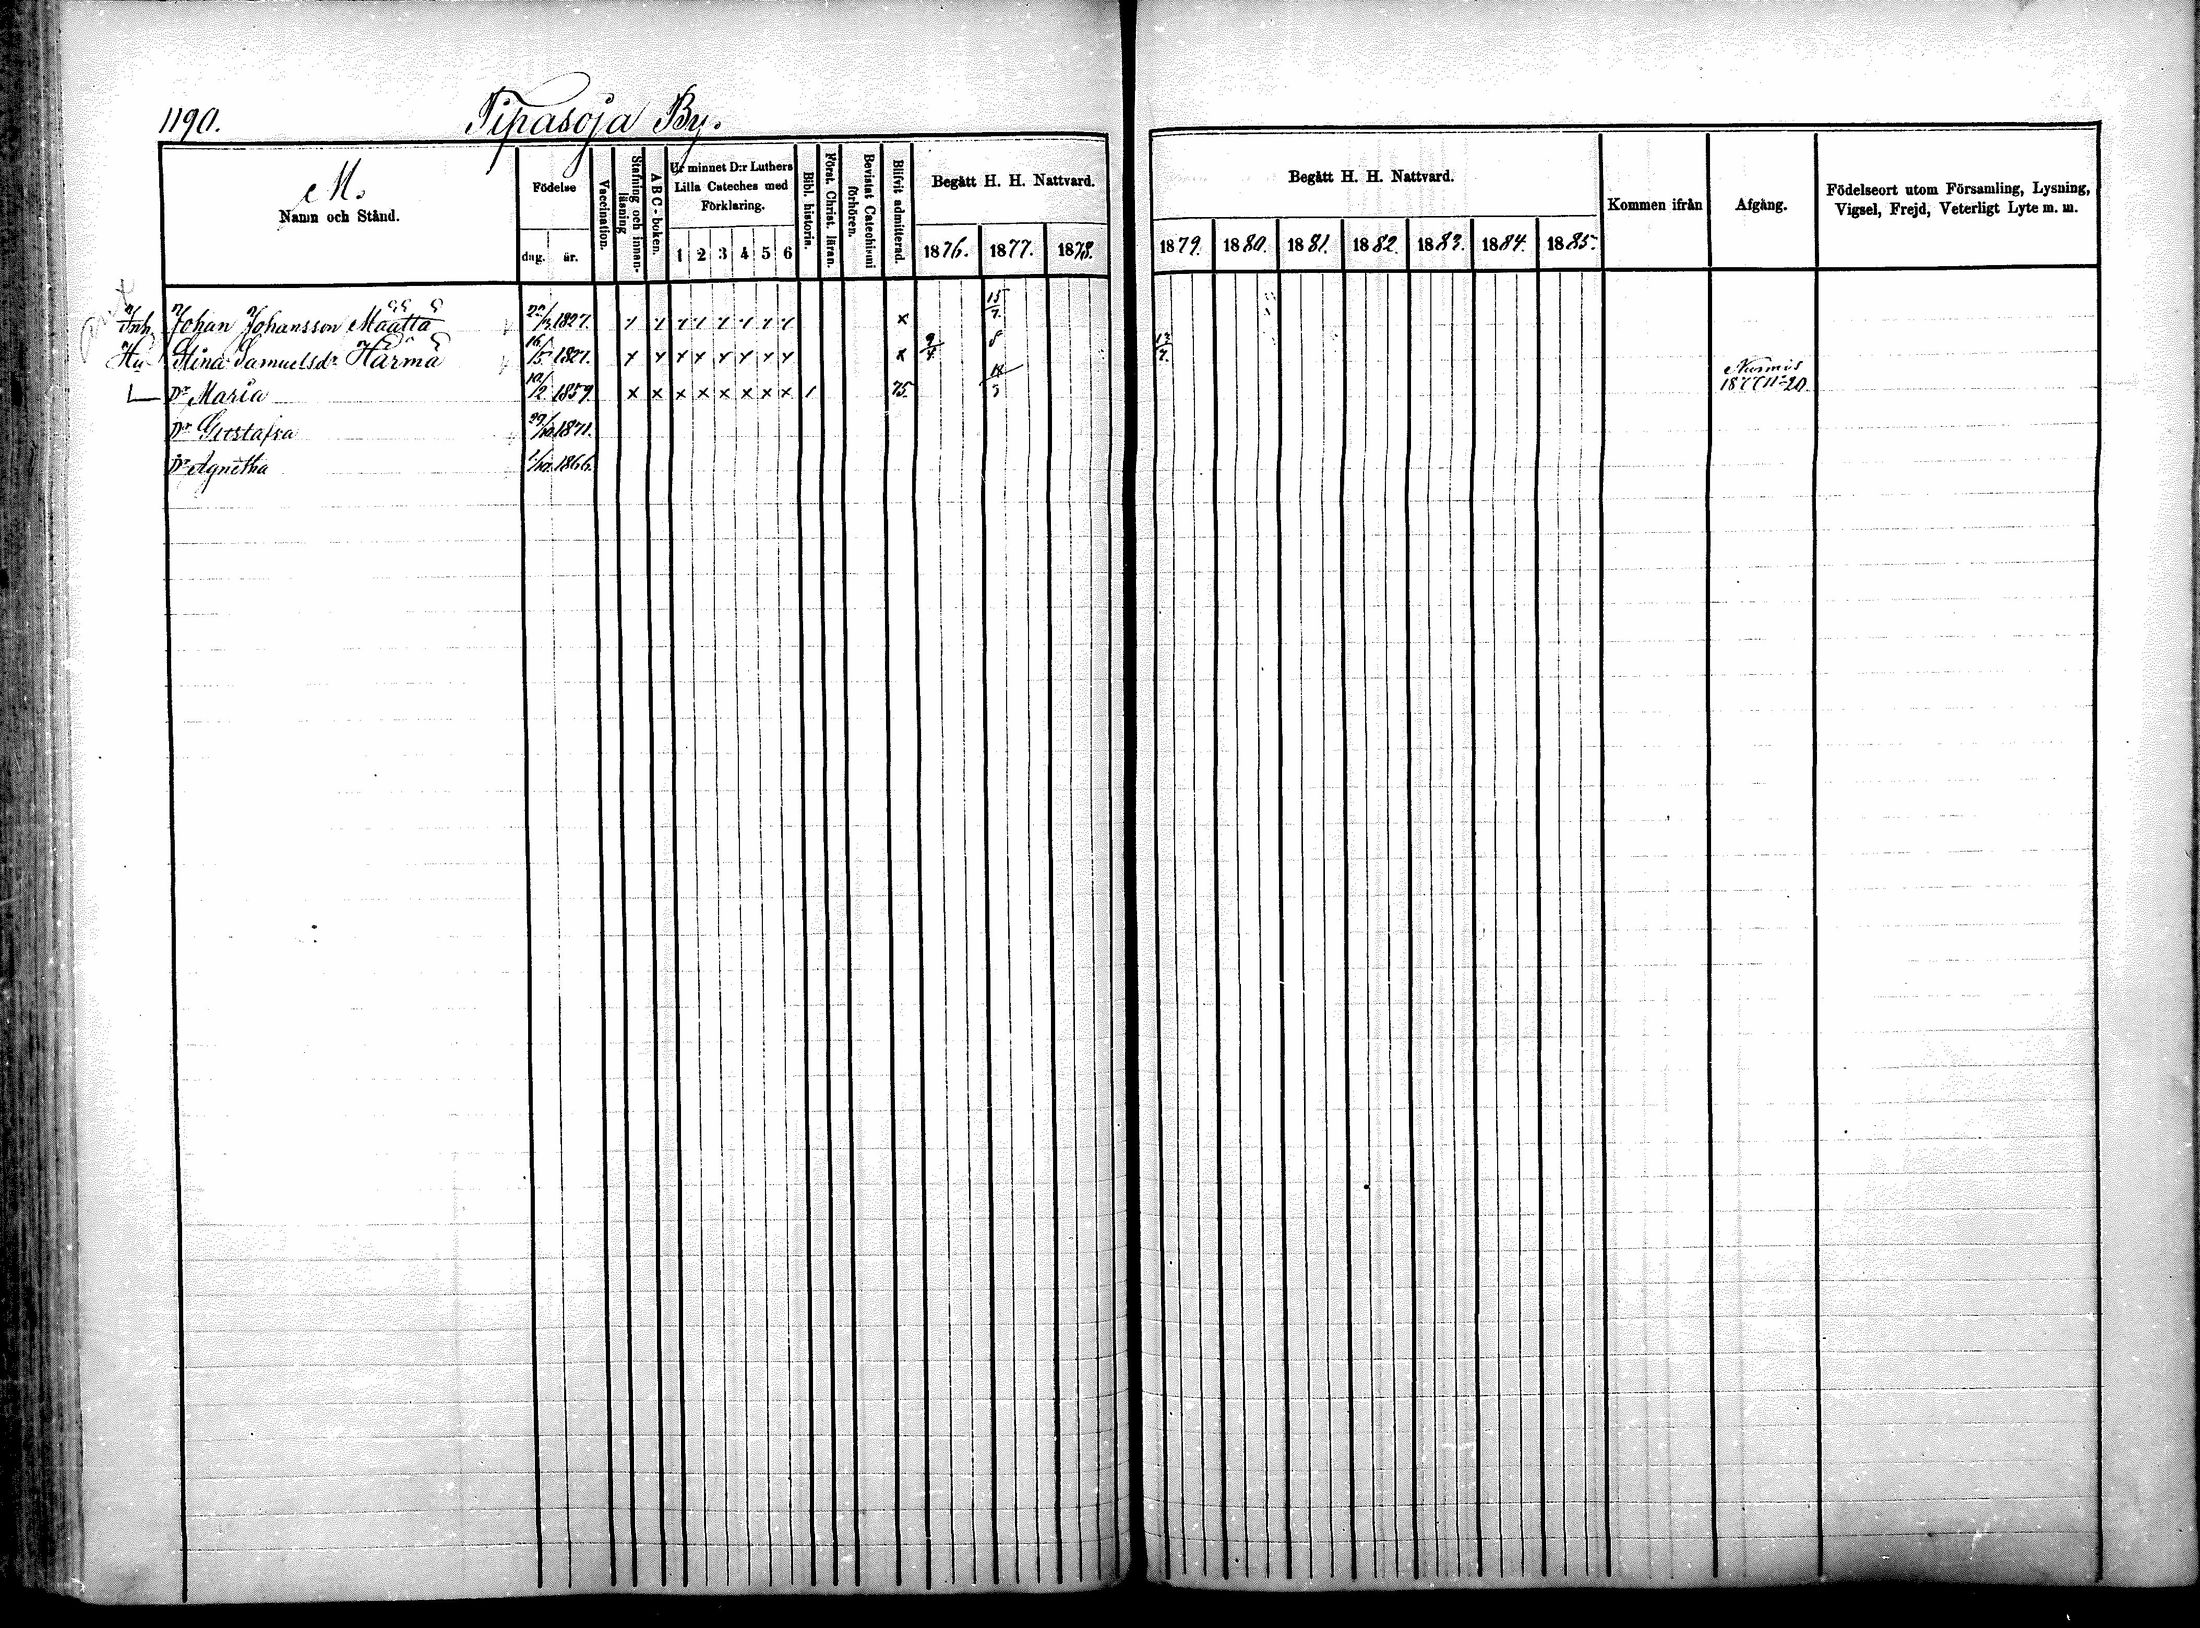 1190. Tipasoja By.
M.
Namn och Stånd.
Födelse
dag. år.
Vaccination.
Stafning och innan-läsning
A B C-boken.
Ur minnet D:r Luthers Lilla Cateches med Förklaring.
1 2 3 4 5 6
Bibl. historia.
Först. Christ. läran.
Bevistat Catechismi förhören.
Blifvit admitterad.
Begått H. H. Nattvard.
1876. 1877. 1878.
Begått H. H. Nattvard.
1879. 1880. 1881. 1882. 1883. 1884. 1885.
Kommen ifrån
Afgång.
Födelseort utom Församling, Lysning, Vigsel, Frejd, Veterligt Lyte m. m.
Inh. Johan Johansson Määttä 1827. x 15/7.
Hu Stina Samuelsdr Härmä 16/5 1821. x 9/4. 8 13/7.
Dr Maria 10/2 1859. x x x x x x x x 1 75. Nurmis 1877 11-20.
Dr Gustafva 29/10 1871.
Dr Agnetha 1/10. 1866.